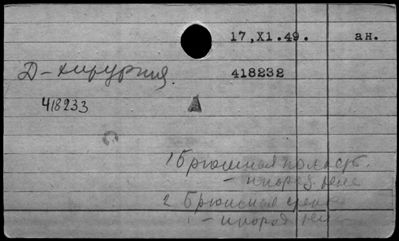 17,XI.49. ан.
Д-хирургия. 418232
418233
1 Брюшная полость.
- инород. тело
2 Брюшная
- инород тело